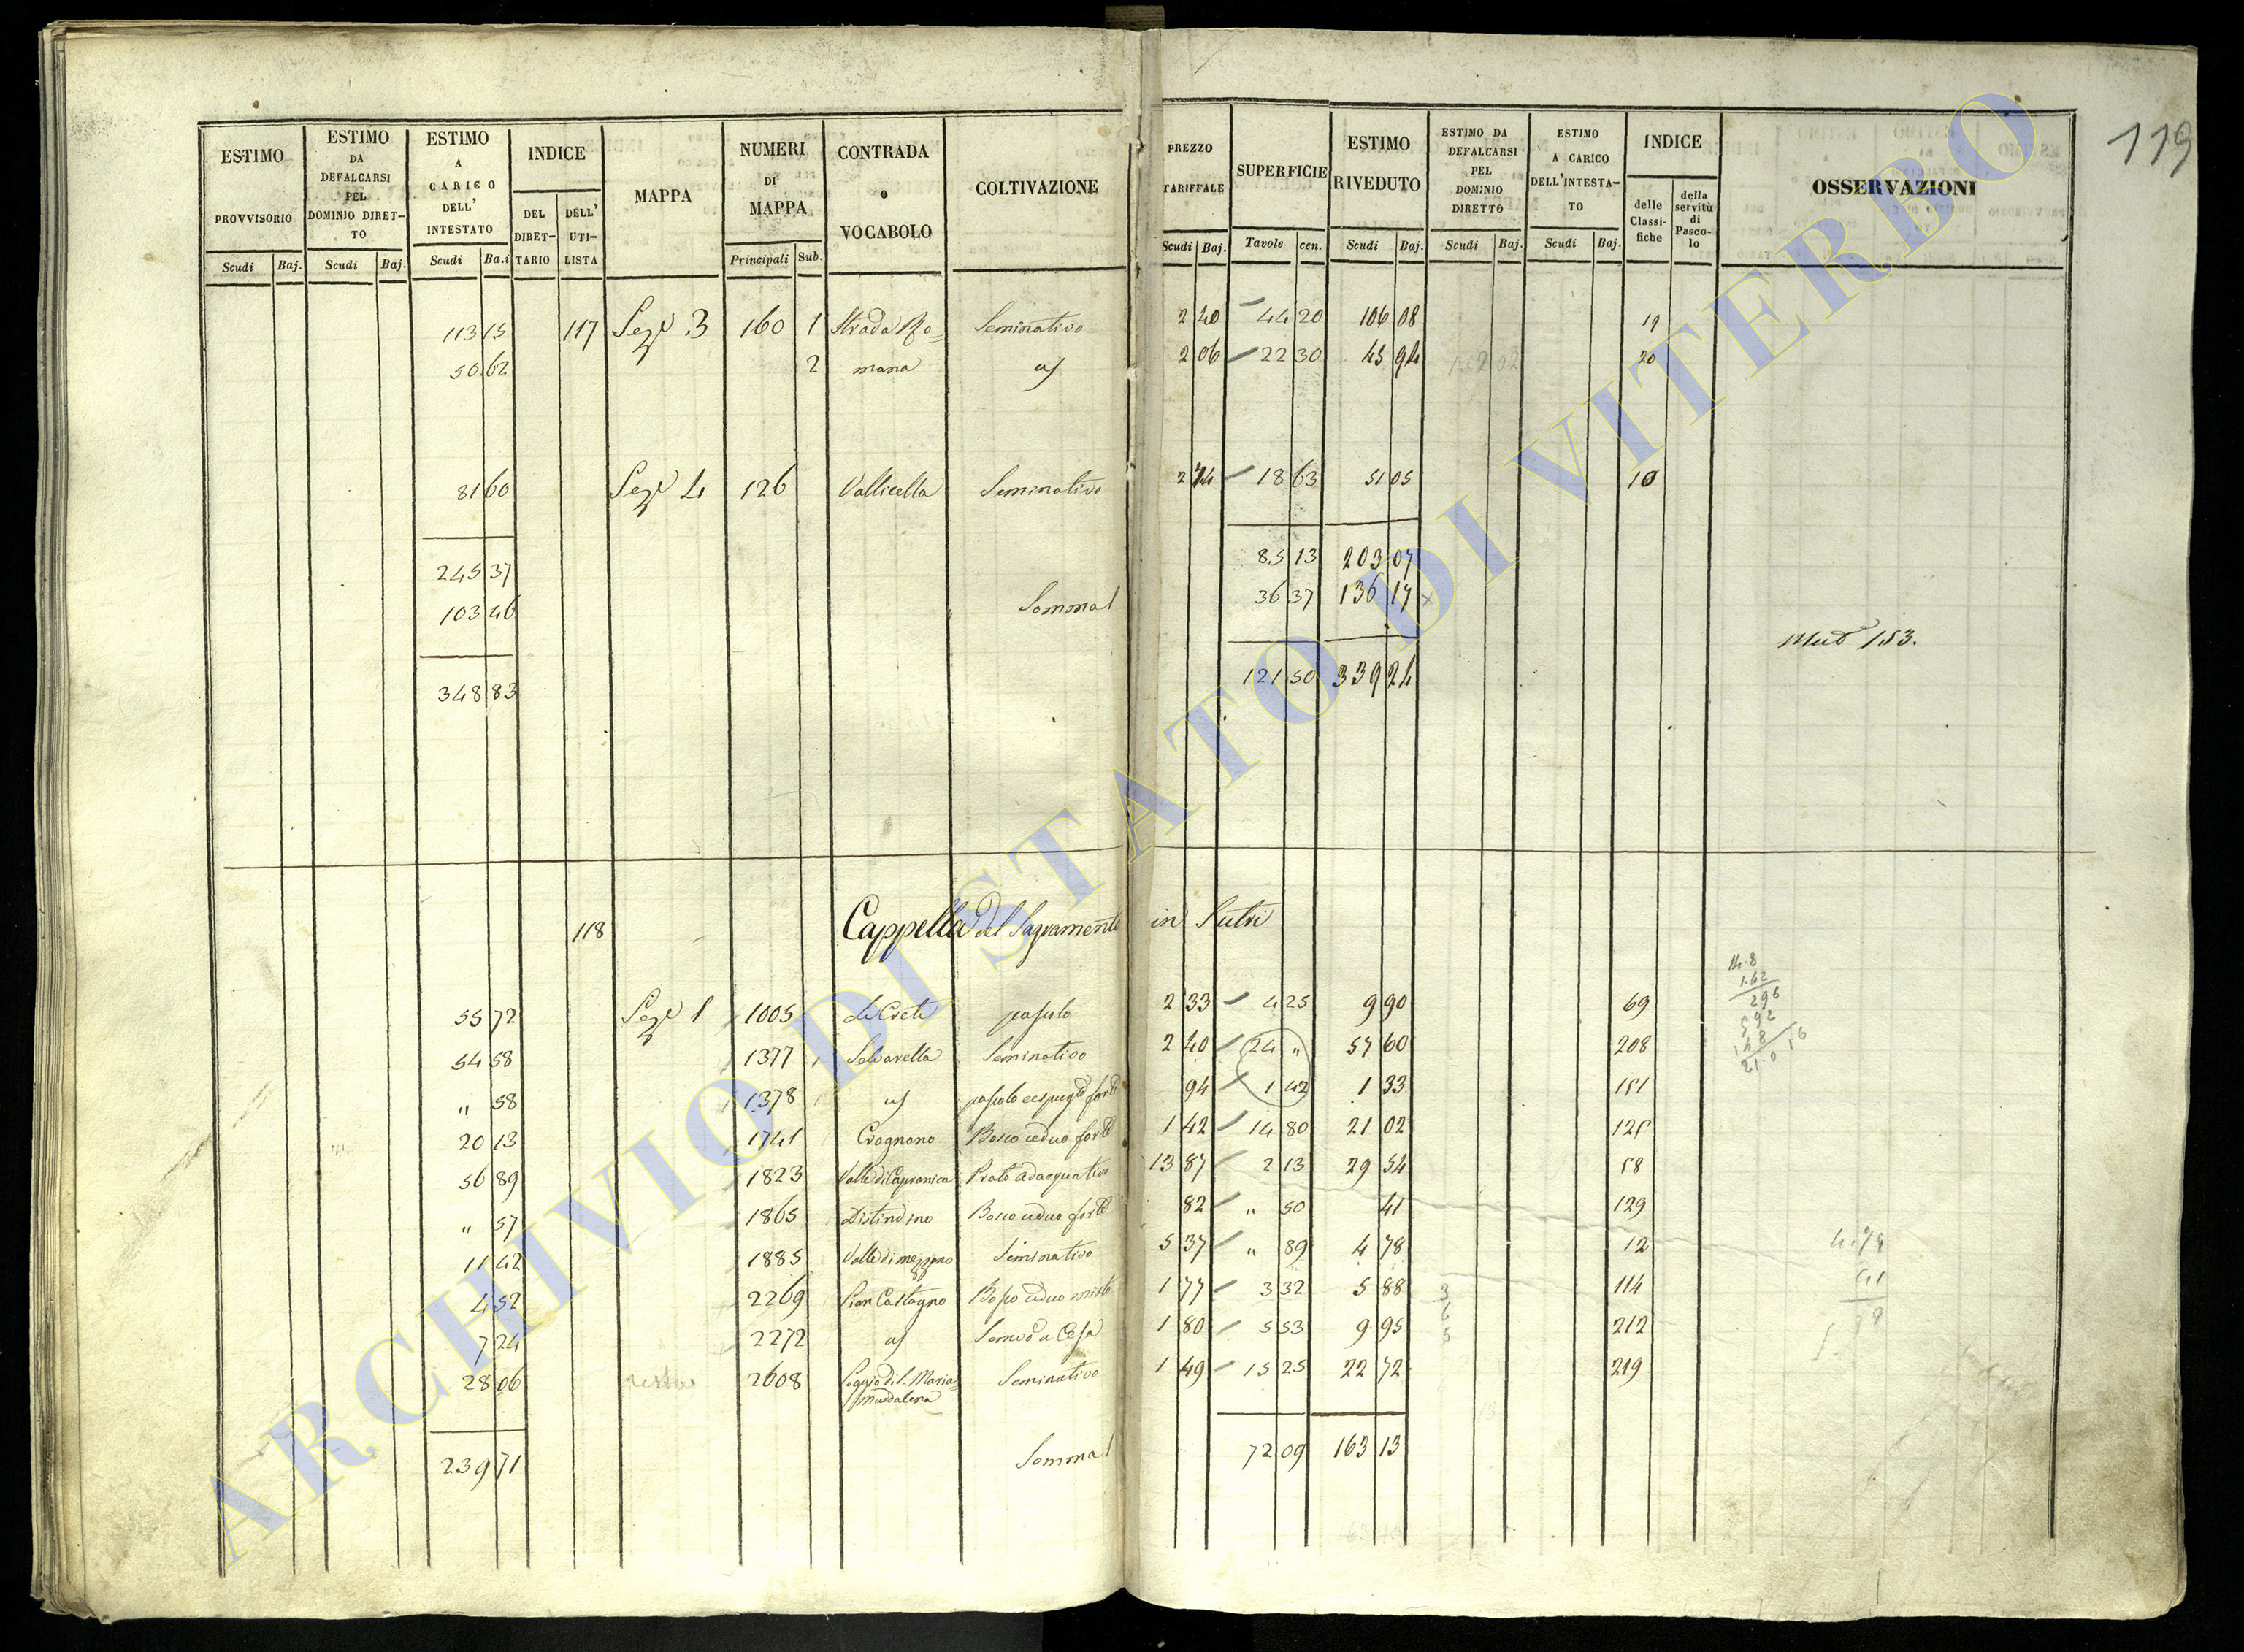 119
ESTIMO PROVVISORIO Scudi Baj.
ESTIMO DA DEFALCARSI PEL DOMINIO DIRET-TO Scudi Baj.
ESTIMO A CARICO DELL' INTESTATO Scudi Ba.i
INDICE DEL DIRET-TARIO DELL' UTI-LISTA
MAPPA
NUMERI DI MAPPA Principali Sub.
CONTRADA o VOCABOLO
COLTIVAZIONE
PREZZO TARIFFALE Scudi Baj.
SUPERFICIE Tavole cen.
ESTIMO RIVEDUTO Scudi Baj.
ESTIMO DA DEFALCARSI PEL DOMINIO DIRETTO Scudi Baj.
ESTIMO A CARICO DELL'INTESTA-TO Scudi Baj.
INDICE delle Classi-fiche della servitù di Pasco-lo
OSSERVAZIONI
113 15 117 Sez.e 3 160 1 Strada Ro= Seminativo 2 40 44 20 106 08 19
50 62 2 mana 2 06 22 30 45 94 20
81 60 Sez.e 4 126 Vallicella Seminativo 2 74 18 63 51 05 10
245 37 85 13 203 07
103 46 Somma 36 37 136 17 x
348 83 121 50 339 24
Mut.e 153.
118 Cappella del Sagramento in Sutri
55 72 Sez.e 1 1005 Li Creti pascolo 2 33 4 25 9 90 69
54 58 1377 Selvarella Seminativo 2 40 24 " 57 60 208
" 58 1378 94 1 42 1 33 151
20 13 1741 Crognano Bosco ceduo forte 1 42 14 80 21 02 125
56 89 1823 Valle di Capranica Prato adacquativo 13 87 2 13 29 54 58
" 57 1865 Distindino Bosco ceduo forte 82 " 50 41 129
11 42 1885 Valle di mezzano Seminativo 5 37 " 89 4 78 12
4 52 2269 Pian Castagno Bosco ceduo misto 1 77 3 32 5 88 114
7 24 2272 1 80 5 53 9 95 212
28 06 resta 2608 Poggio di S. Maria= Seminativo 1 49 15 25 22 72 219
Maddalena
239 71 Somma 72 09 163 13
14.8
1.42
296
592
148
21.0 16
4.78
41
ARCHIVIO DI STATO DI VITERBO